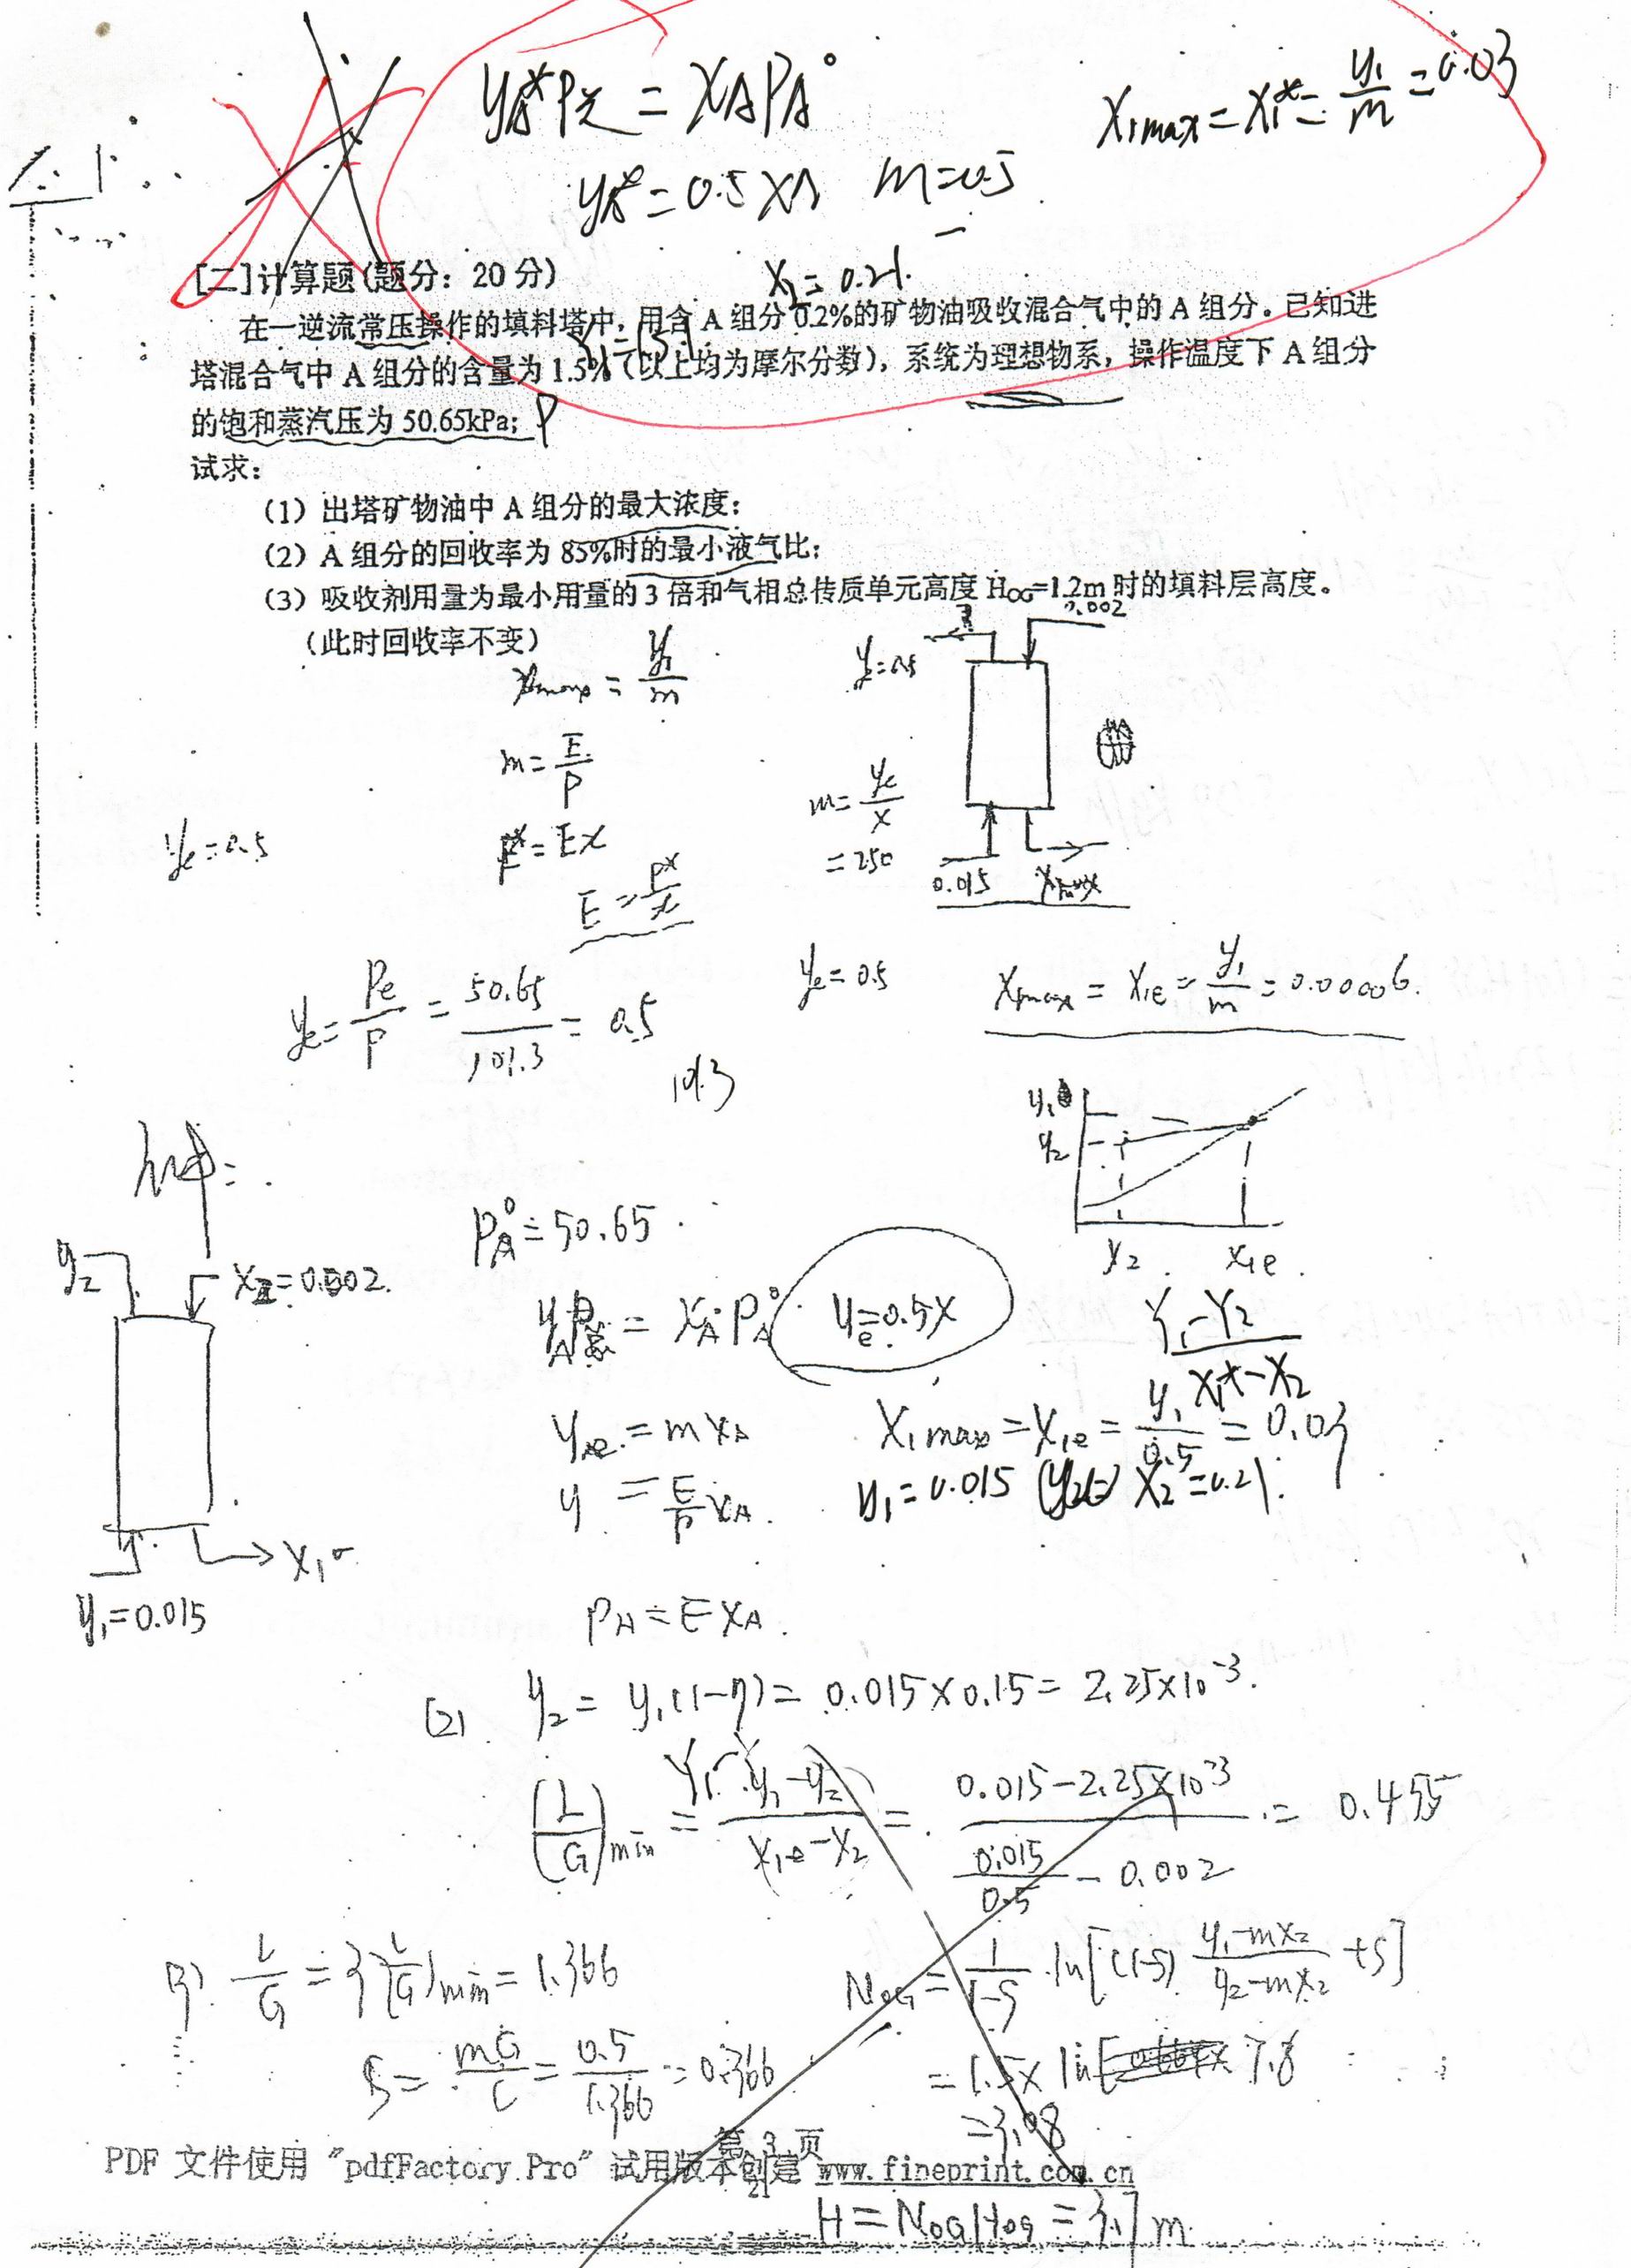 yA*P总 = xAPA°
x1max = x1* = y1/m = 0.03
yA* = 0.5xA m=0.5
[二]计算题(题分：20 分)
x2 = 0.2%
在一逆流常压操作的填料塔中，用含 A 组分 0.2%的矿物油吸收混合气中的 A 组分。已知进
塔混合气中 A 组分的含量为 1.5%（以上均为摩尔分数），系统为理想物系，操作温度下 A 组分
的饱和蒸汽压为 50.65kPa； P
试求：
（1）出塔矿物油中 A 组分的最大浓度；
（2）A 组分的回收率为 85%时的最小液气比；
（3）吸收剂用量为最小用量的 3 倍和气相总传质单元高度 HOG=1.2m 时的填料层高度。
（此时回收率不变）
0.002
x1max = y1/m
m = E/P
m = ye/x
= 250
ye = 0.5
P* = Ex
E = P*/x
0.015 x1max
ye = Pe/P = 50.65/101.3 = 0.5
ye = 0.5
x1max = x1e = y1/m = 0.00006.
101.3
y1
y2
x2 x1e
PA° = 50.65
y2 x2 = 0.002
yAP总 = xAPA° ye = 0.5x
Y1-Y2/x1*-x2
yAe = mxA
x1max = x1e = y1/0.5 = 0.03
y = E/P xA
y1 = 0.015 x2 = 0.2%
x1
y1 = 0.015
PA = ExA
(2) y2 = y1(1-η) = 0.015×0.15 = 2.25×10⁻³
(L/G)min = y1-y2/x1e-x2 = 0.015-2.25×10⁻³/(0.015/0.5 - 0.002) = 0.455
3) L/G = 3(L/G)min = 1.366
NOG = 1/(1-S) ln[(1-S) y1-mx2/y2-mx2 + S]
S = mG/L = 0.5/1.366 = 0.366
= 1.5× ln 7.8
= 3.08
第 3 页
PDF 文件使用 "pdfFactory Pro" 试用版本创建 www.fineprint.com.cn
21
H = NOG HOG = 3.7 m